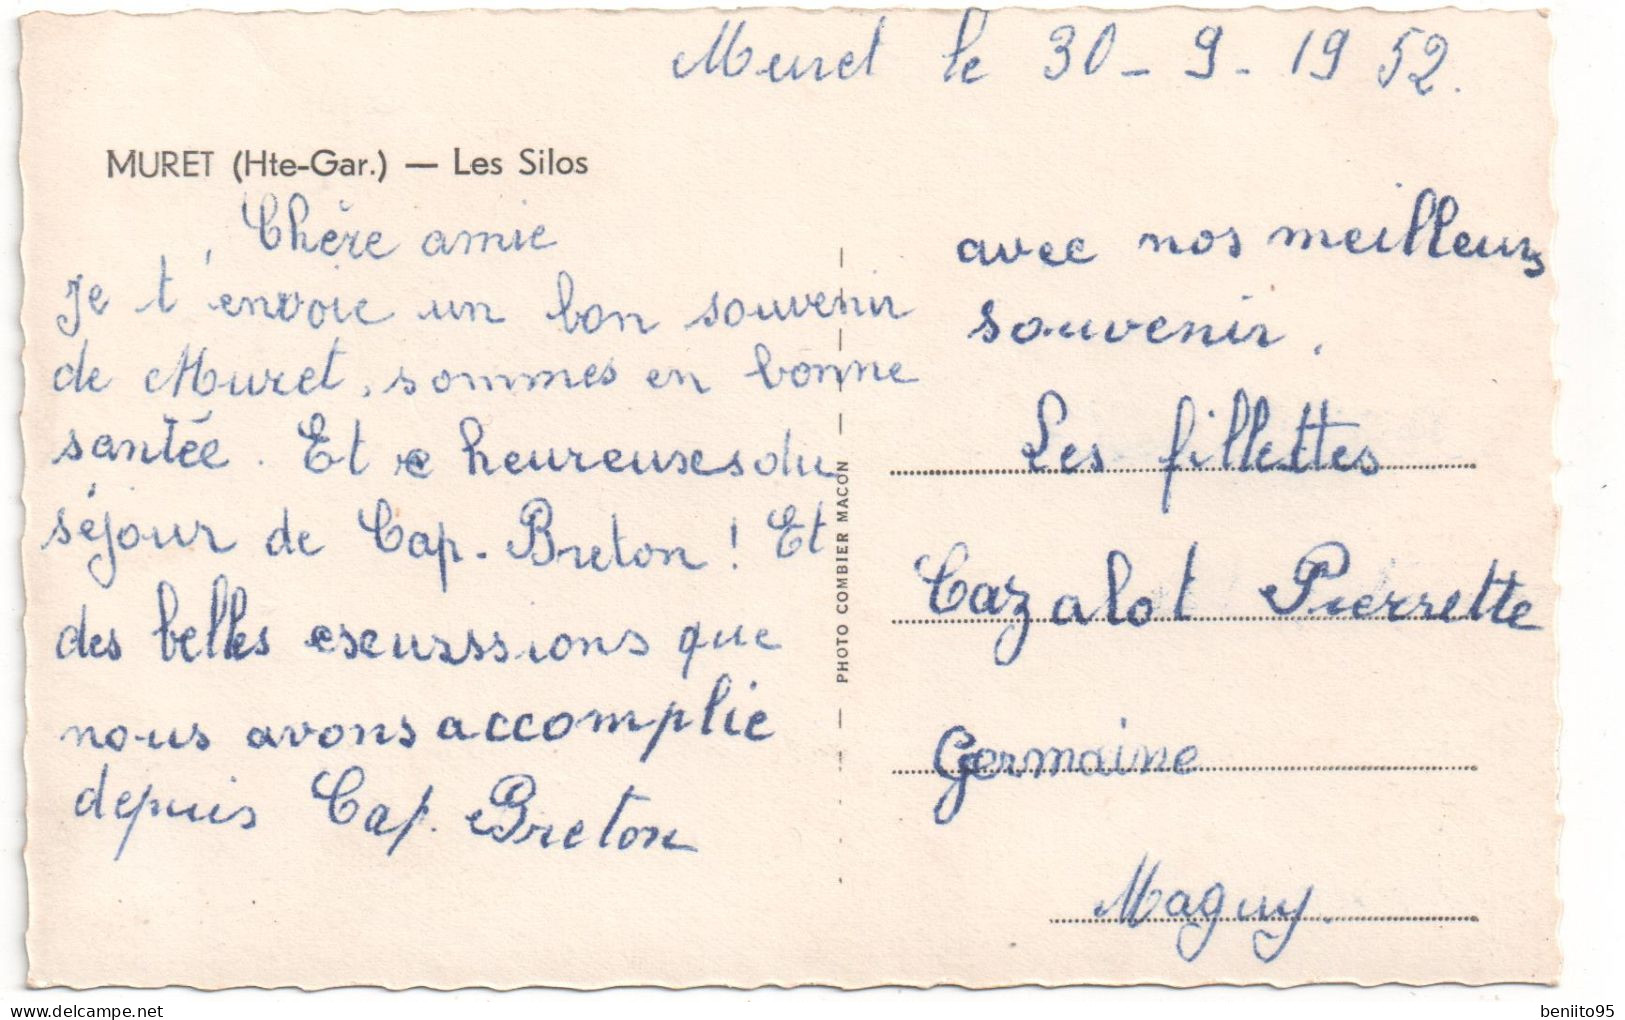 Muret le 30-9-1952.
MURET (Hte-Gar.) — Les Silos
Chère amie
Je t'envoie un bon souvenir
de Muret, sommes en bonne
santée. Et heureuses du
séjour de Cap-Breton! Et
des belles escurssions que
nous avons accomplie
depuis Cap. Breton
PHOTO COMBIER MACON
avec nos meilleurs
souvenir.
Les fillettes
Cazalot Pierrette
Germaine
Maguy.
beniito95